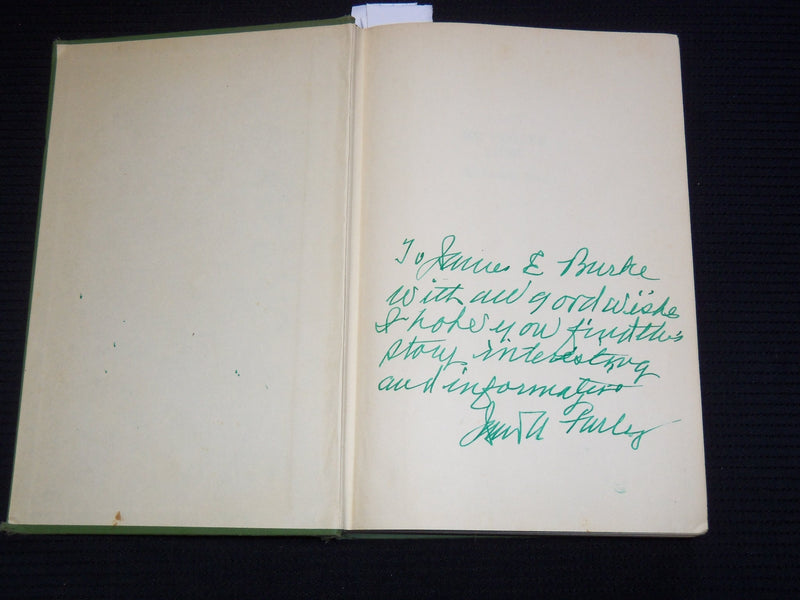 To James E Burke
with all good wishes
I hope you find this
story interesting
and informative
James A Farley